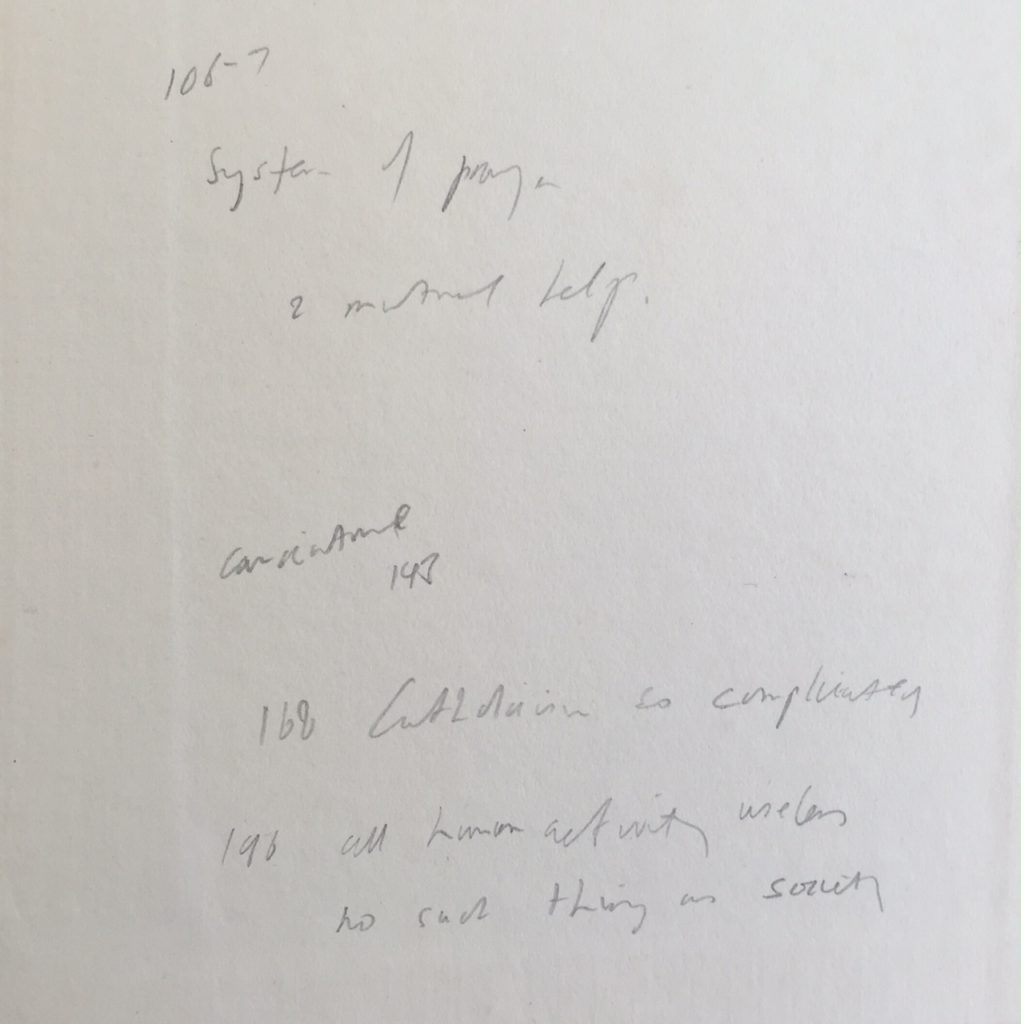 106-7
System of prayer
& mutual help.
caricature
143
168 Catholicism so complicated
196 all human activity useless
no such thing as society